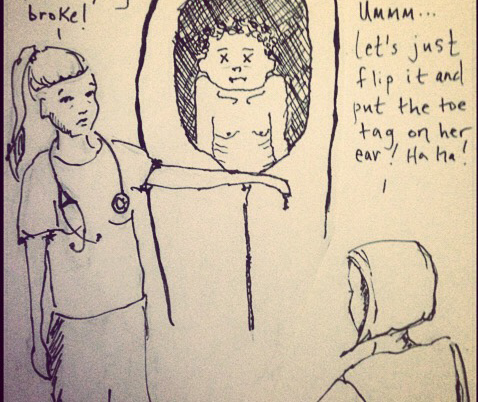 broke!
Ummm...
let's just
flip it and
put the toe
tag on her
ear! Ha Ha!